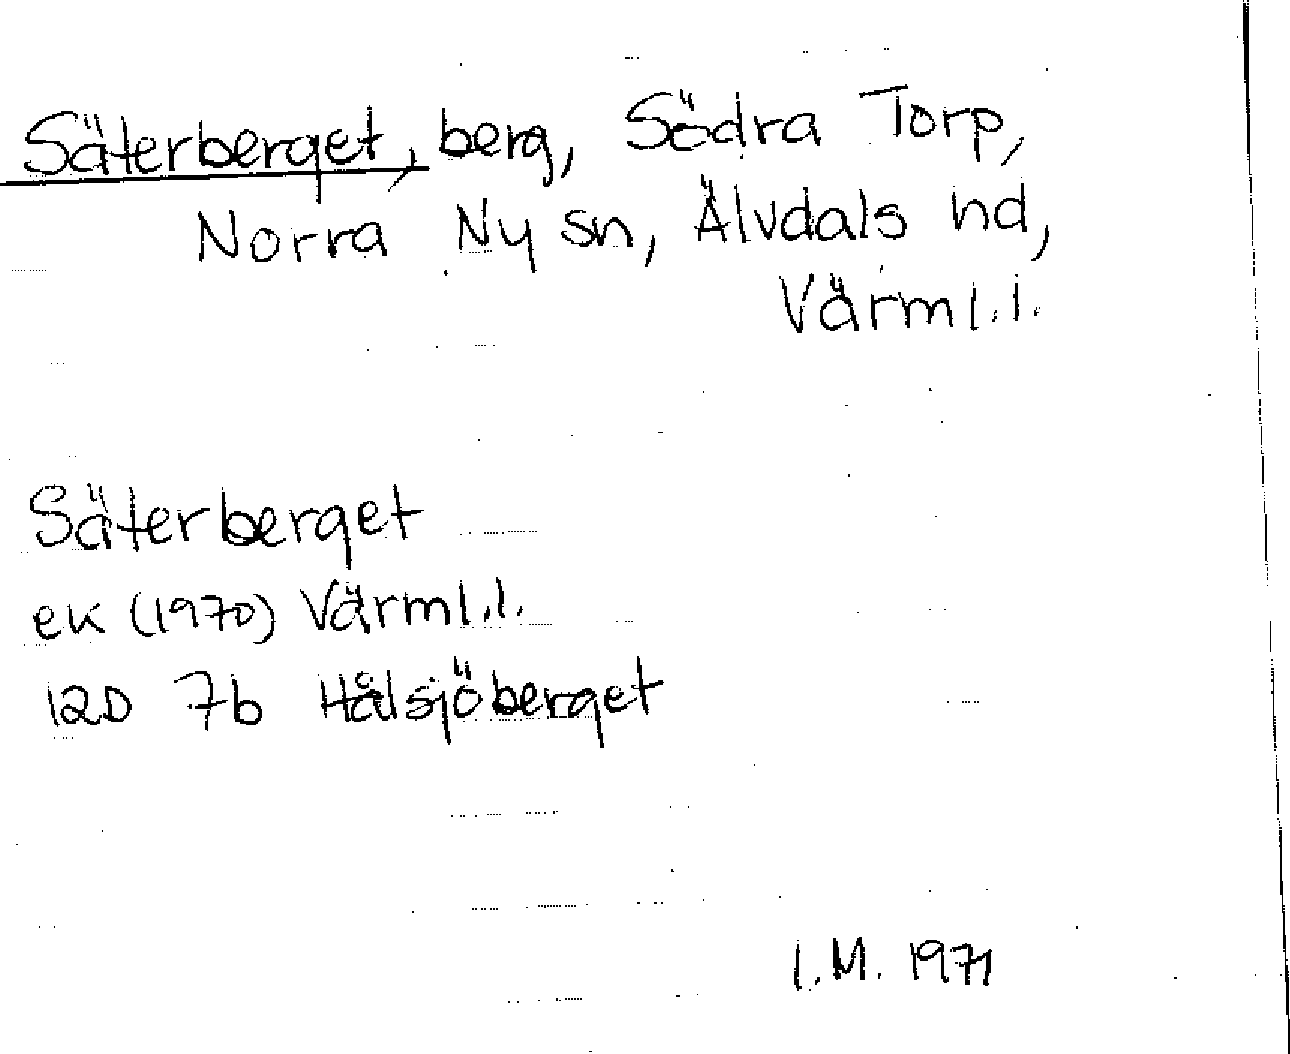 Säterberget, berg, Södra Torp,
Norra Ny sn, Älvdals hd,
Värml.l.
Säterberget
ek (1970) Värml.l.
12D 7b Hålsjöberget
I.M. 1971